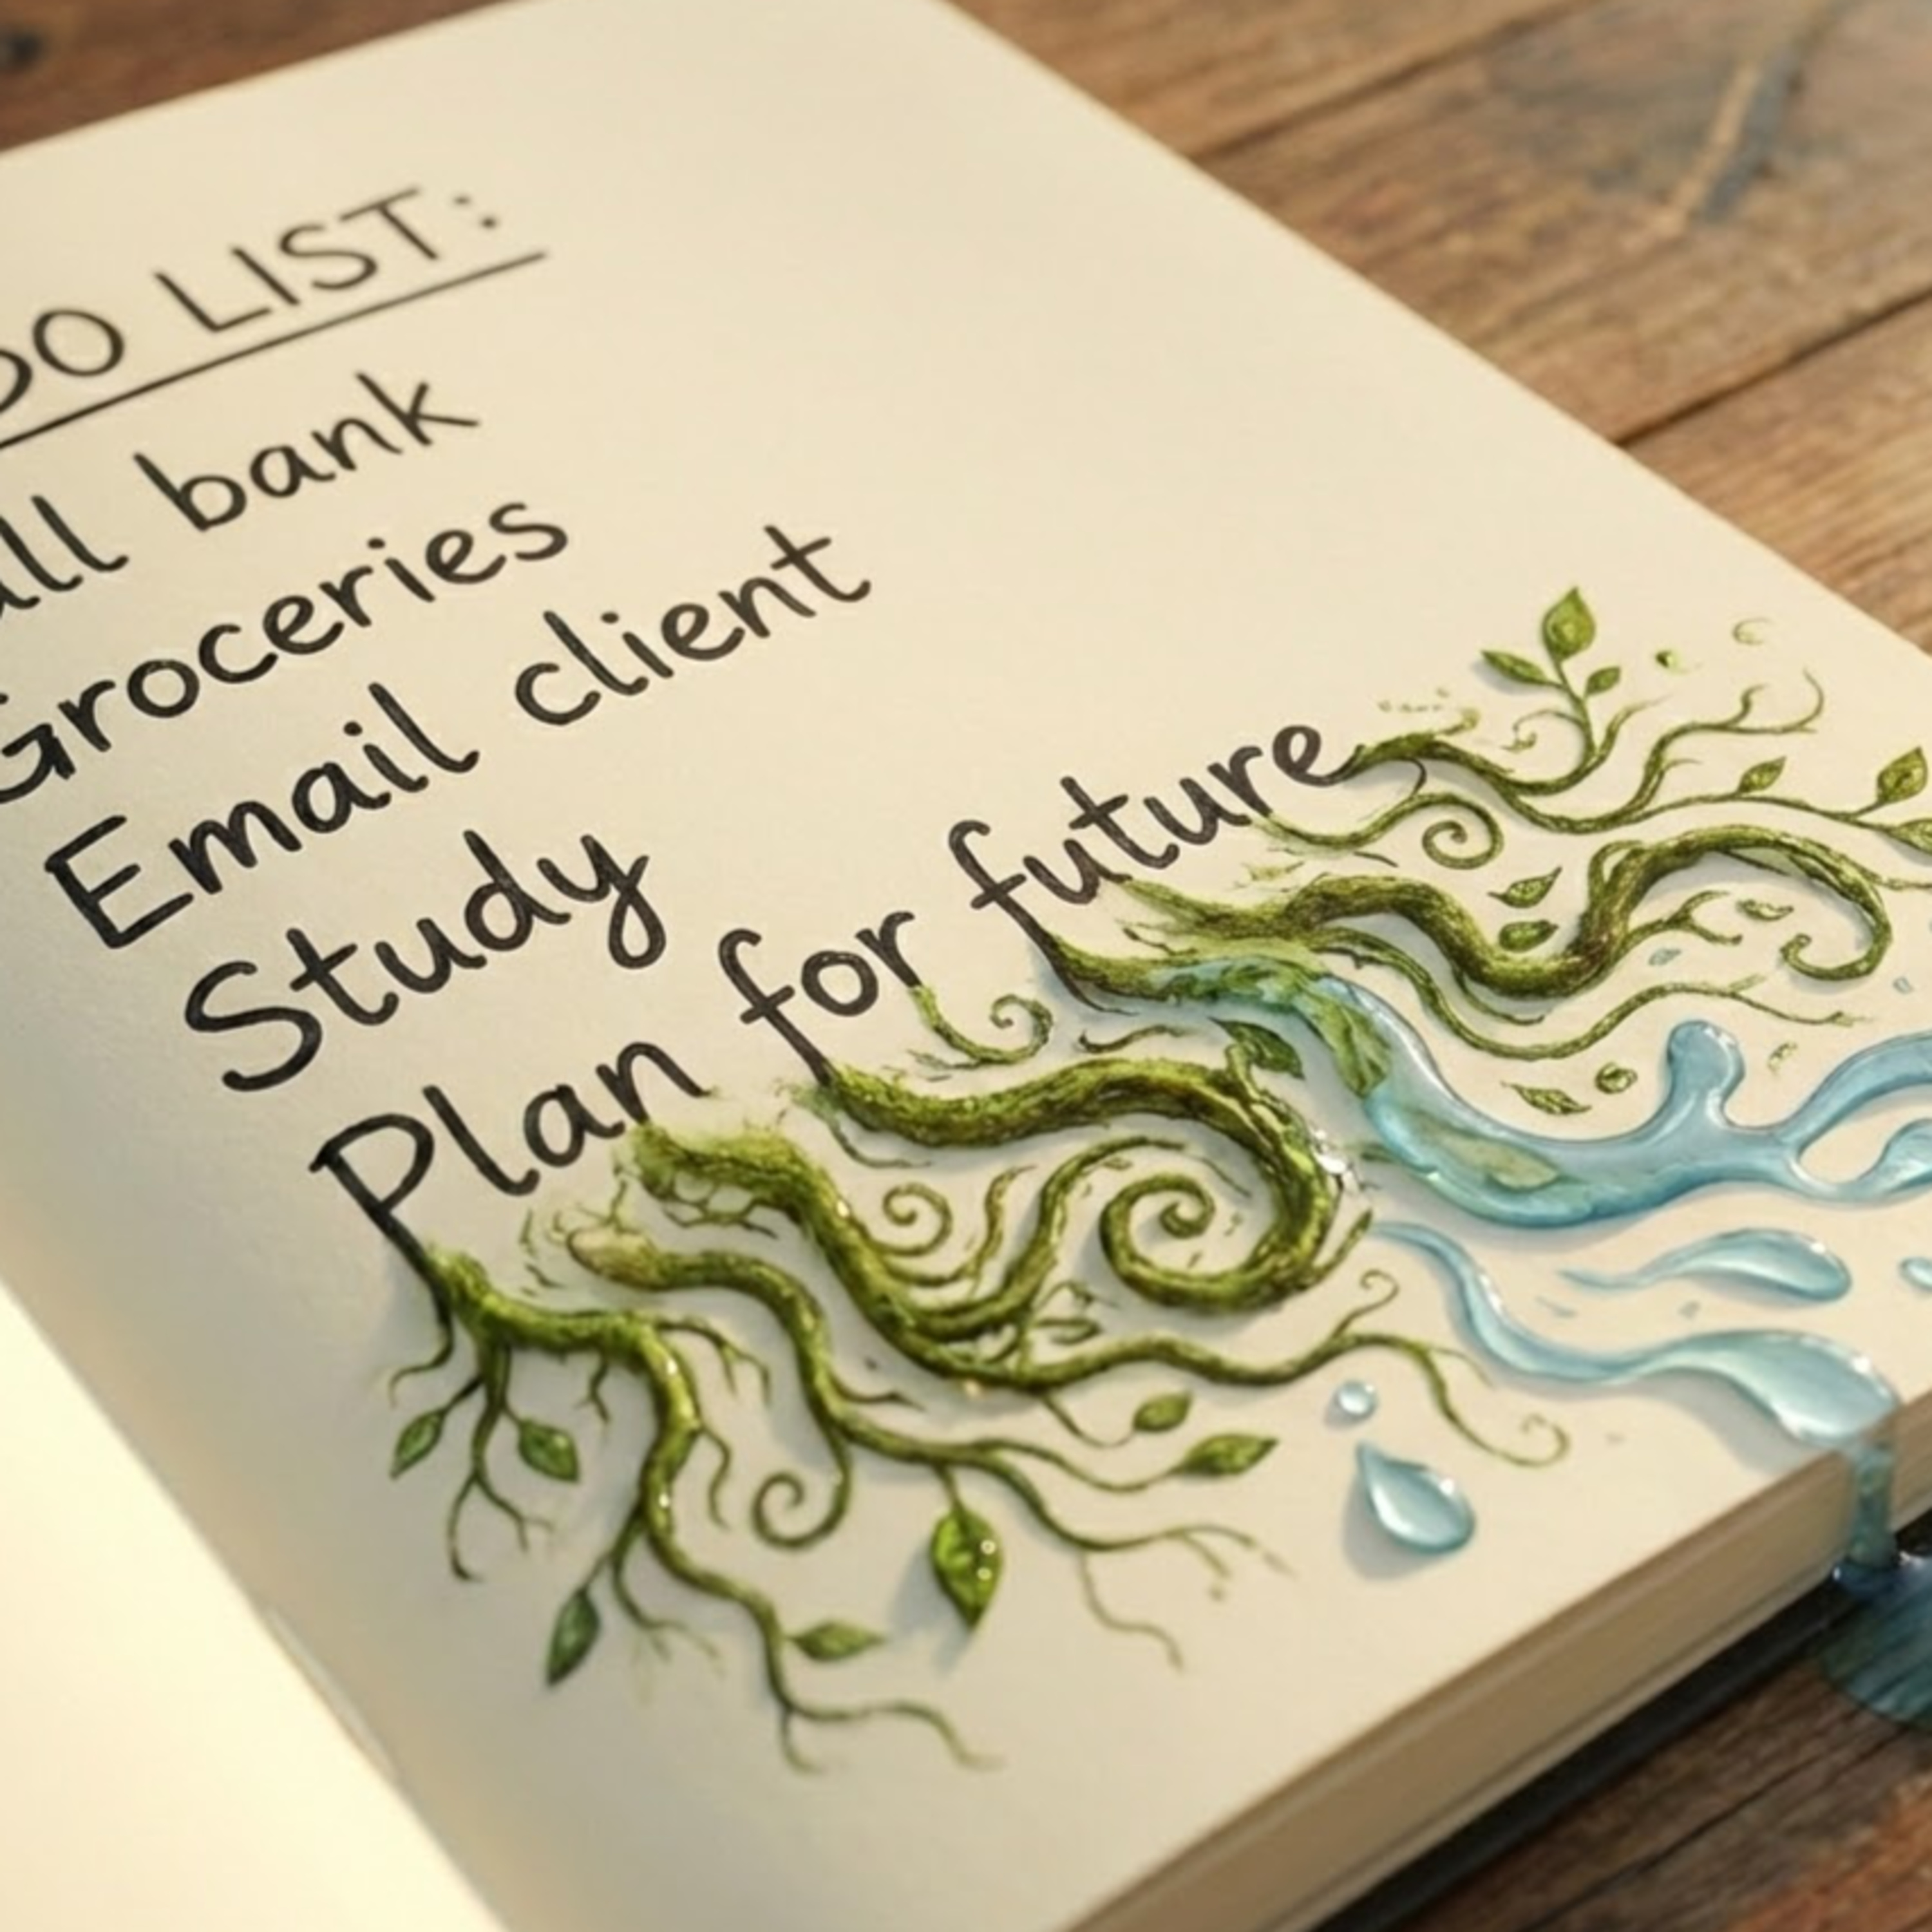 DO LIST:
all bank
Groceries
Email client
Study
Plan for future